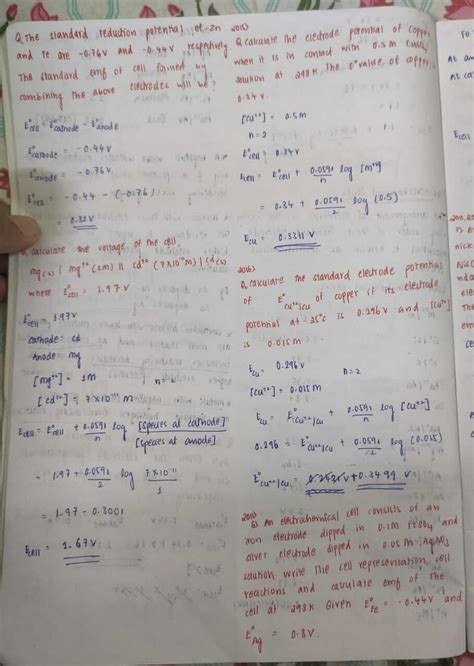 Q. The standard reduction potential of Zn
and Fe are -0.76V and -0.44V respectively
The standard emf of cell formed by
combining the above electrodes will be?
E°cell = E°cathode - E°anode
E°cathode = -0.44V
E°anode = -0.76V
E°cell = -0.44 - (-0.76)
= 0.32V
Q. Calculate the voltage of the cell,
Mg(s) | Mg²⁺(1M) || Cd²⁺ (7×10⁻¹¹M) | Cd(s)
where E°cell = 1.97V
E°cell = 1.97V
cathode = Cd
Anode = Mg
[Mg²⁺] = 1M n=2
[Cd²⁺] = 7×10⁻¹¹M
Ecell = E°cell + 0.0591/n log [species at cathode]/[species at anode]
= 1.97 + 0.0591/2 log 7×10⁻¹¹/1
= 1.97 - 0.3001
Ecell = 1.67V
2015)
Q. Calculate the electrode potential of copper
when it is in contact with 0.5M CuSO₄
solution at 298K. The E° value of copper
0.34V.
[Cu²⁺] = 0.5M
n=2
E°cell = 0.34V
Ecell = E°cell + 0.0591/n log [Mⁿ⁺]
= 0.34 + 0.0591/2 log (0.5)
ECu = 0.3311V
2016)
Q. Calculate the standard electrode potentials
of E°Cu²⁺/Cu of copper if its electrode
potential at 25°C is 0.296V and [Cu²⁺]
is 0.015M
ECu = 0.296V n=2
[Cu²⁺] = 0.015M
ECu = E°Cu²⁺/Cu + 0.0591/n log [Cu²⁺]
0.296 = E°Cu²⁺/Cu + 0.0591/n log (0.015)
E°Cu²⁺/Cu = +0.3499V
An electrochemical cell consists of an
iron electrode dipped in 0.1M FeSO₄ and
silver electrode dipped in 0.05M AgNO₃
solution. Write the cell representation, cell
reactions and calculate emf of the
cell at 298K. Given E°Fe = -0.44V and
E°Ag = 0.8V.